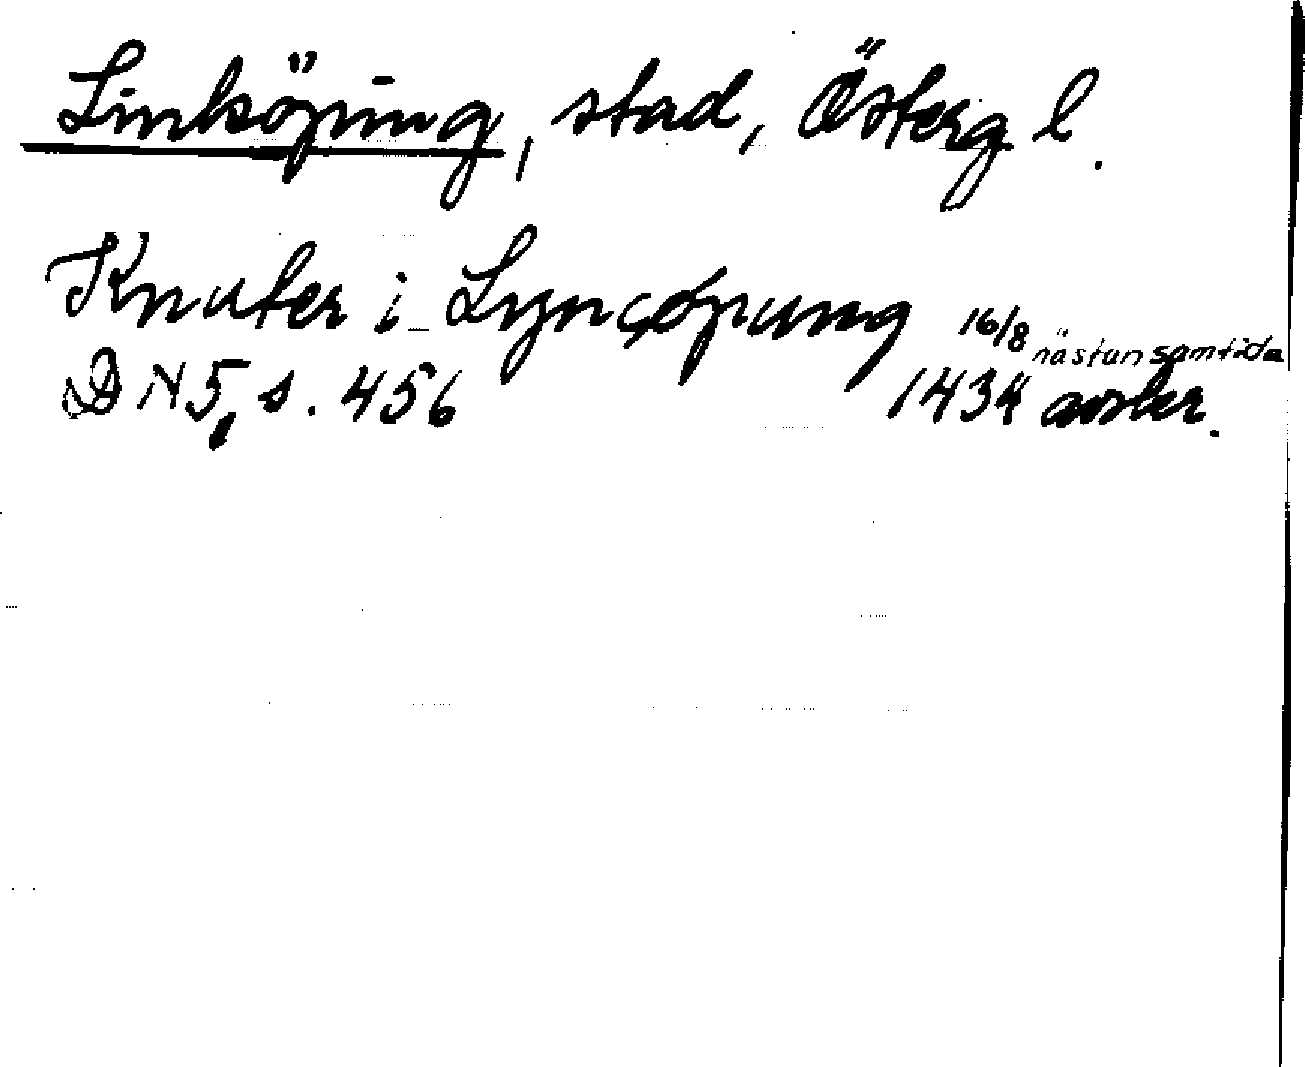 Linköping, stad, Österg l.
Knuter i Lyncøpung 16/8 nästan samtida
DN 5, s. 456 1434 avskr.